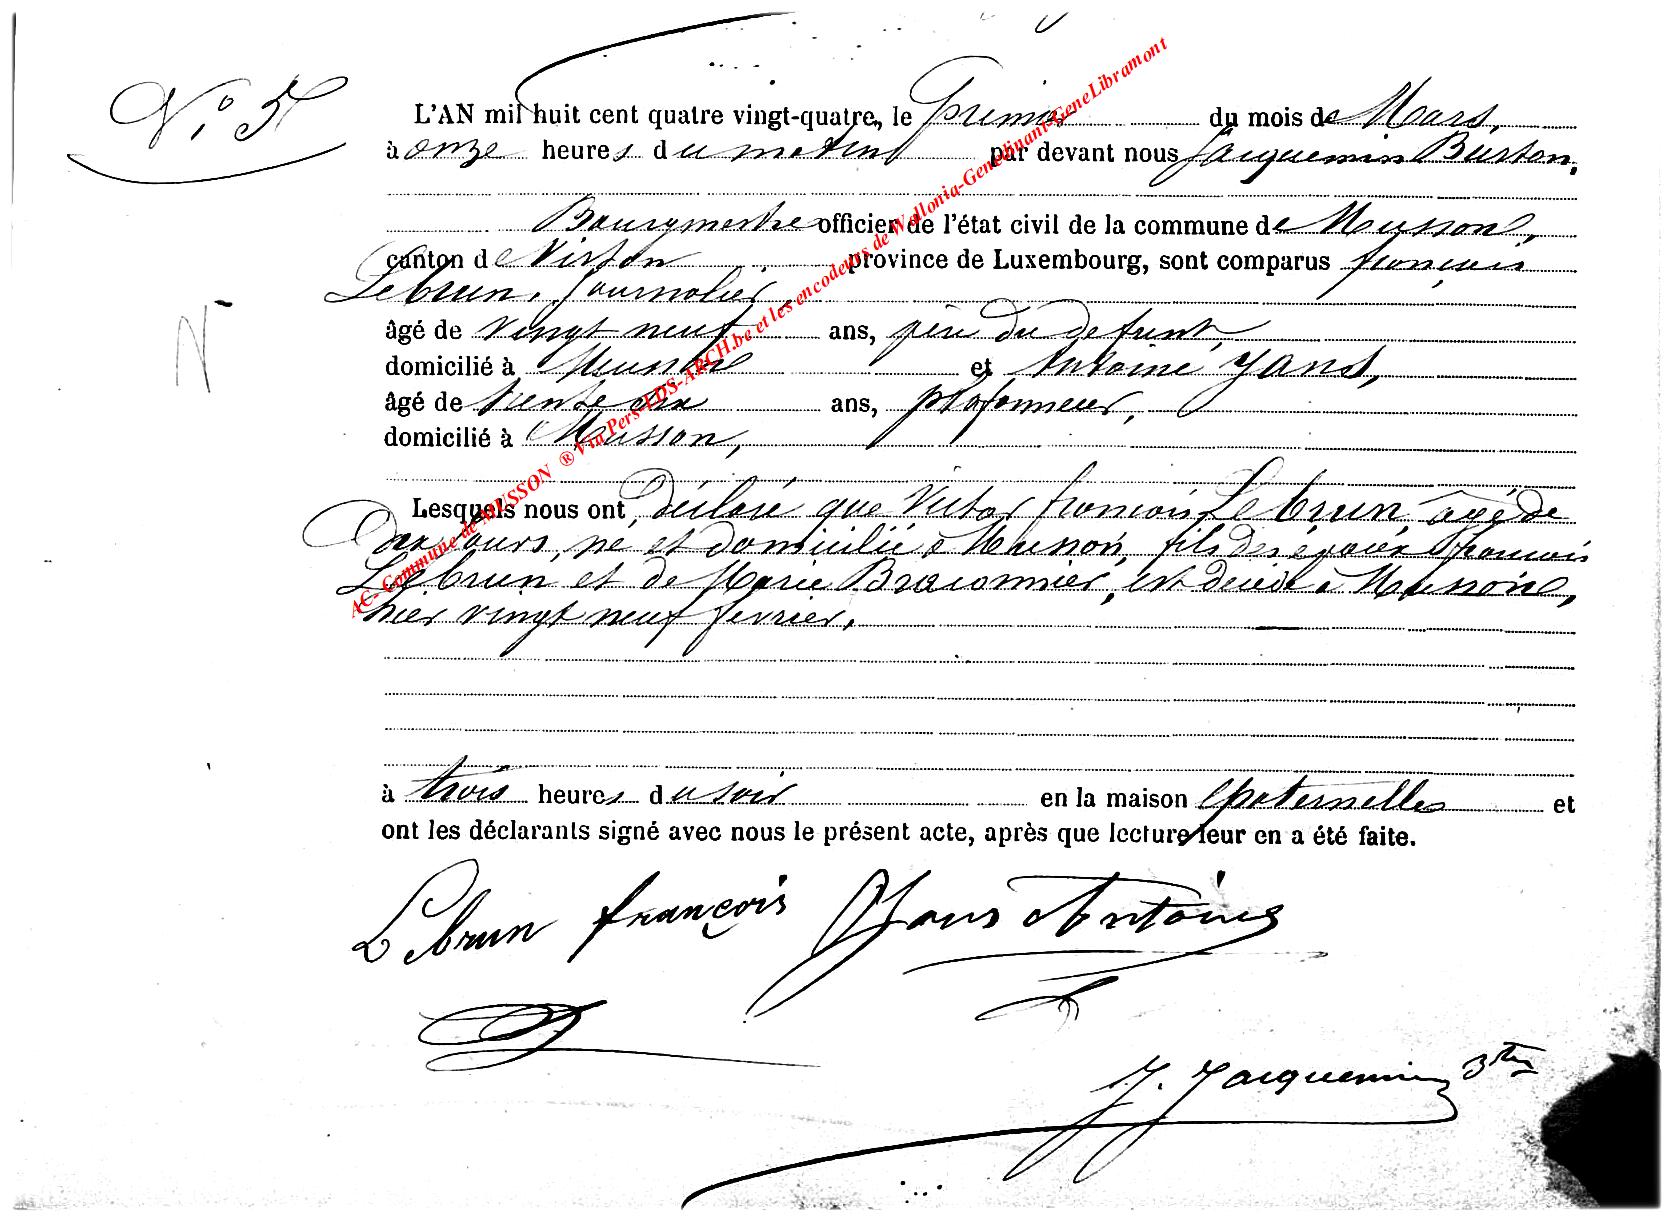 N° 5
L'AN mil huit cent quatre vingt-quatre, le Premier du mois de Mars,
à onze heures du matin par devant nous Jacquemin Burton,
Bourgmestre officier de l'état civil de la commune de Musson,
canton de Virton province de Luxembourg, sont comparus françois
Lebrun, journalier,
âgé de vingt neuf ans, père du defunt,
domicilié à Musson et Antoine Yans,
N
âgé de trente ans, plafonneur,
domicilié à Musson,
Lesquels nous ont déclaré que Victor françois Lebrun, âgé de
jours, né et domicilié à Musson, fils des époux françois
Lebrun et de Marie Braconnier, est décédé à Musson,
hier vingt neuf fevrier,
à trois heures du soir en la maison paternelle et
ont les déclarants signé avec nous le présent acte, après que lecture leur en a été faite.
Lebrun françois Yans Antoine
J. Jacquemin
AC- Commune de MUSSON ® Via Pers-LDS-ARCH.be et les encodeurs de Wallonia-Genedinant-GeneLibramont